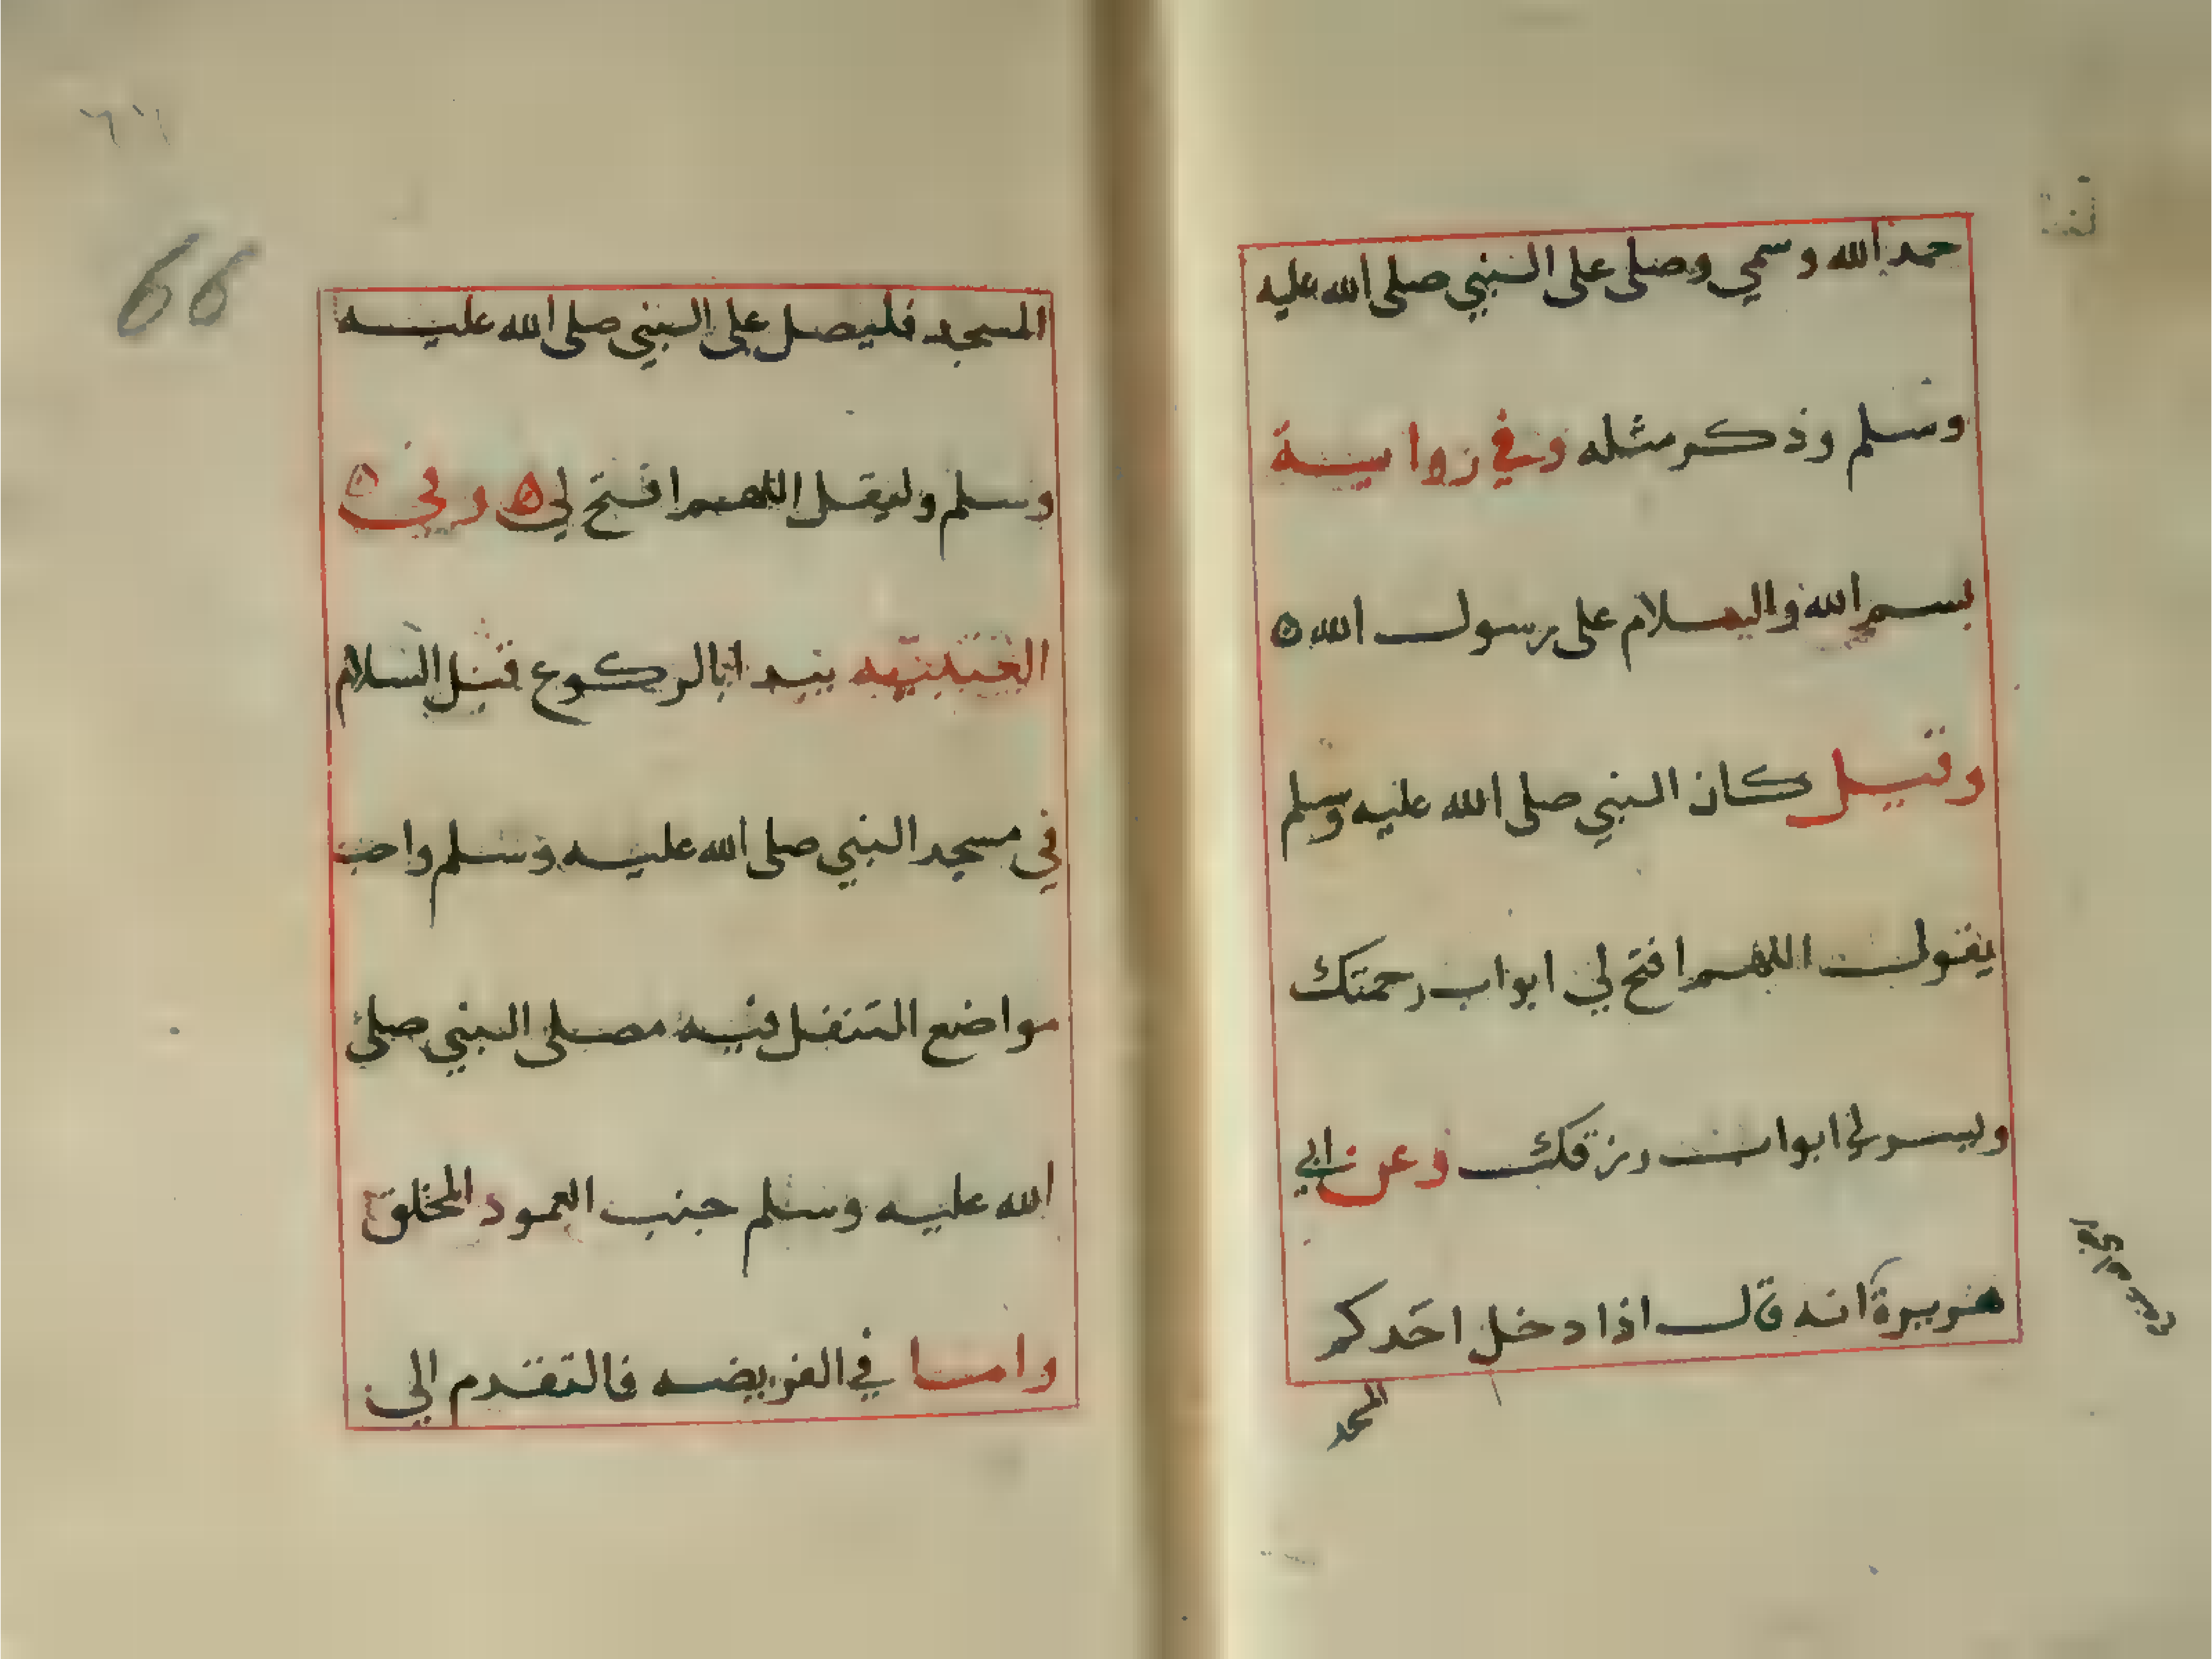 حمد الله وسمي وصلى على النبي صلى الله عليه
وسلم وذكر مثله وفي رواية
بسم الله والسلام على رسول الله ه
وقيل كان النبي صلى الله عليه وسلم
يقول اللهم افتح لي ابواب رحمتك
ويسر لي ابواب رزقك وعن ابي
هريرة انه قال اذا دخل احدكم
المسجد
٦٦
66
المسجد فليصل على النبي صلى الله عليه
وسلم وليقل اللهم افتح لي ه وفي ه
العتبيه يبدا بالركوع قبل السلام
في مسجد النبي صلى الله عليه وسلم واحب
مواضع التنفل فيه مصلى النبي صلى
الله عليه وسلم حيث العمود المخلق
واما في الفريضه فالتقدم الى